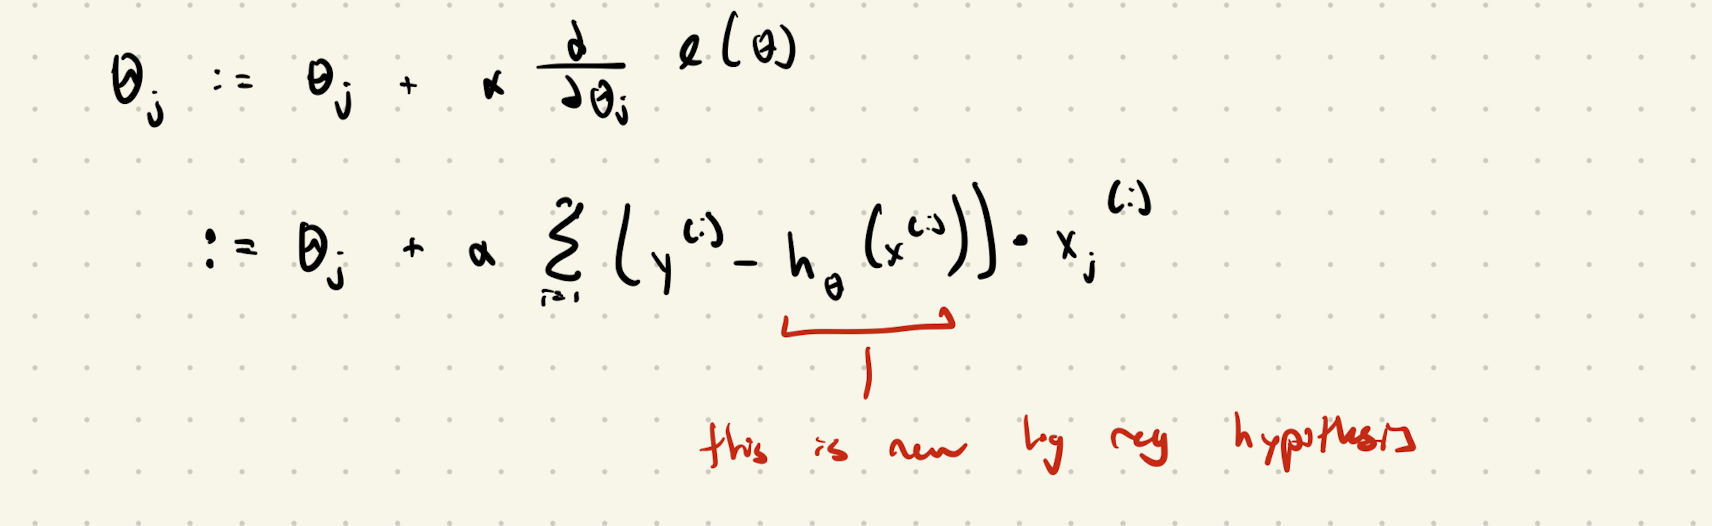 θ_j := θ_j + α ∂/∂θ_j ℓ(θ)
:= θ_j + α Σ_{i=1} (y^(i) - h_θ(x^(i))) · x_j^(i)
this is new log reg hypothesis